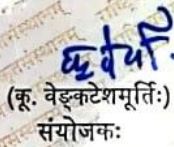 (कू. वेङ्कटेशमूर्तिः)
संयोजकः